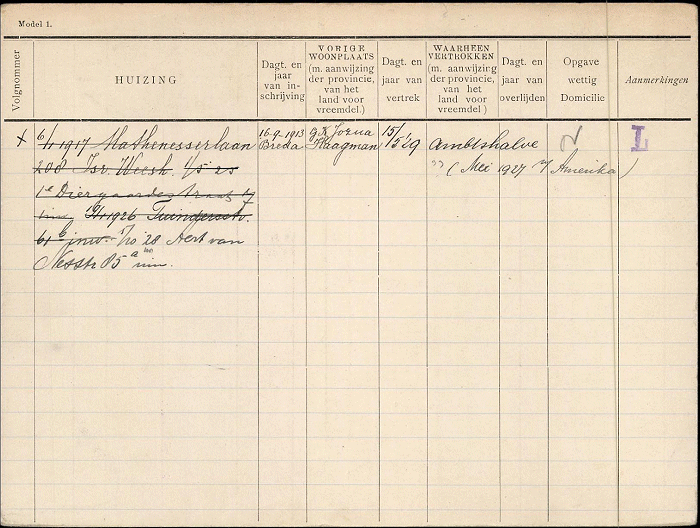 Model 1.
Volgnommer
HUIZING
Dagt. en jaar van in-schrijving
VORIGE WOONPLAATS (m. aanwijzing der provincie, van het land voor vreemdel.)
Dagt. en jaar van vertrek
WAARHEEN VERTROKKEN (m. aanwijzing der provincie, van het land voor vreemdel.)
Dagt. en jaar van overlijden
Opgave wettig Domicilie
Aanmerkingen
6/1 1917 Mathenesserlaan 16-9-1913 15/5 '29 Ambtshalve L
208 Isr. Weesh. 1/5 25 Breda Haagman (Mei 1927 Amerika)
1e Diergaardestraat
1926 Tuinderstr.
61 b inw. 28 Aert van
Nesstr 85 a inw.